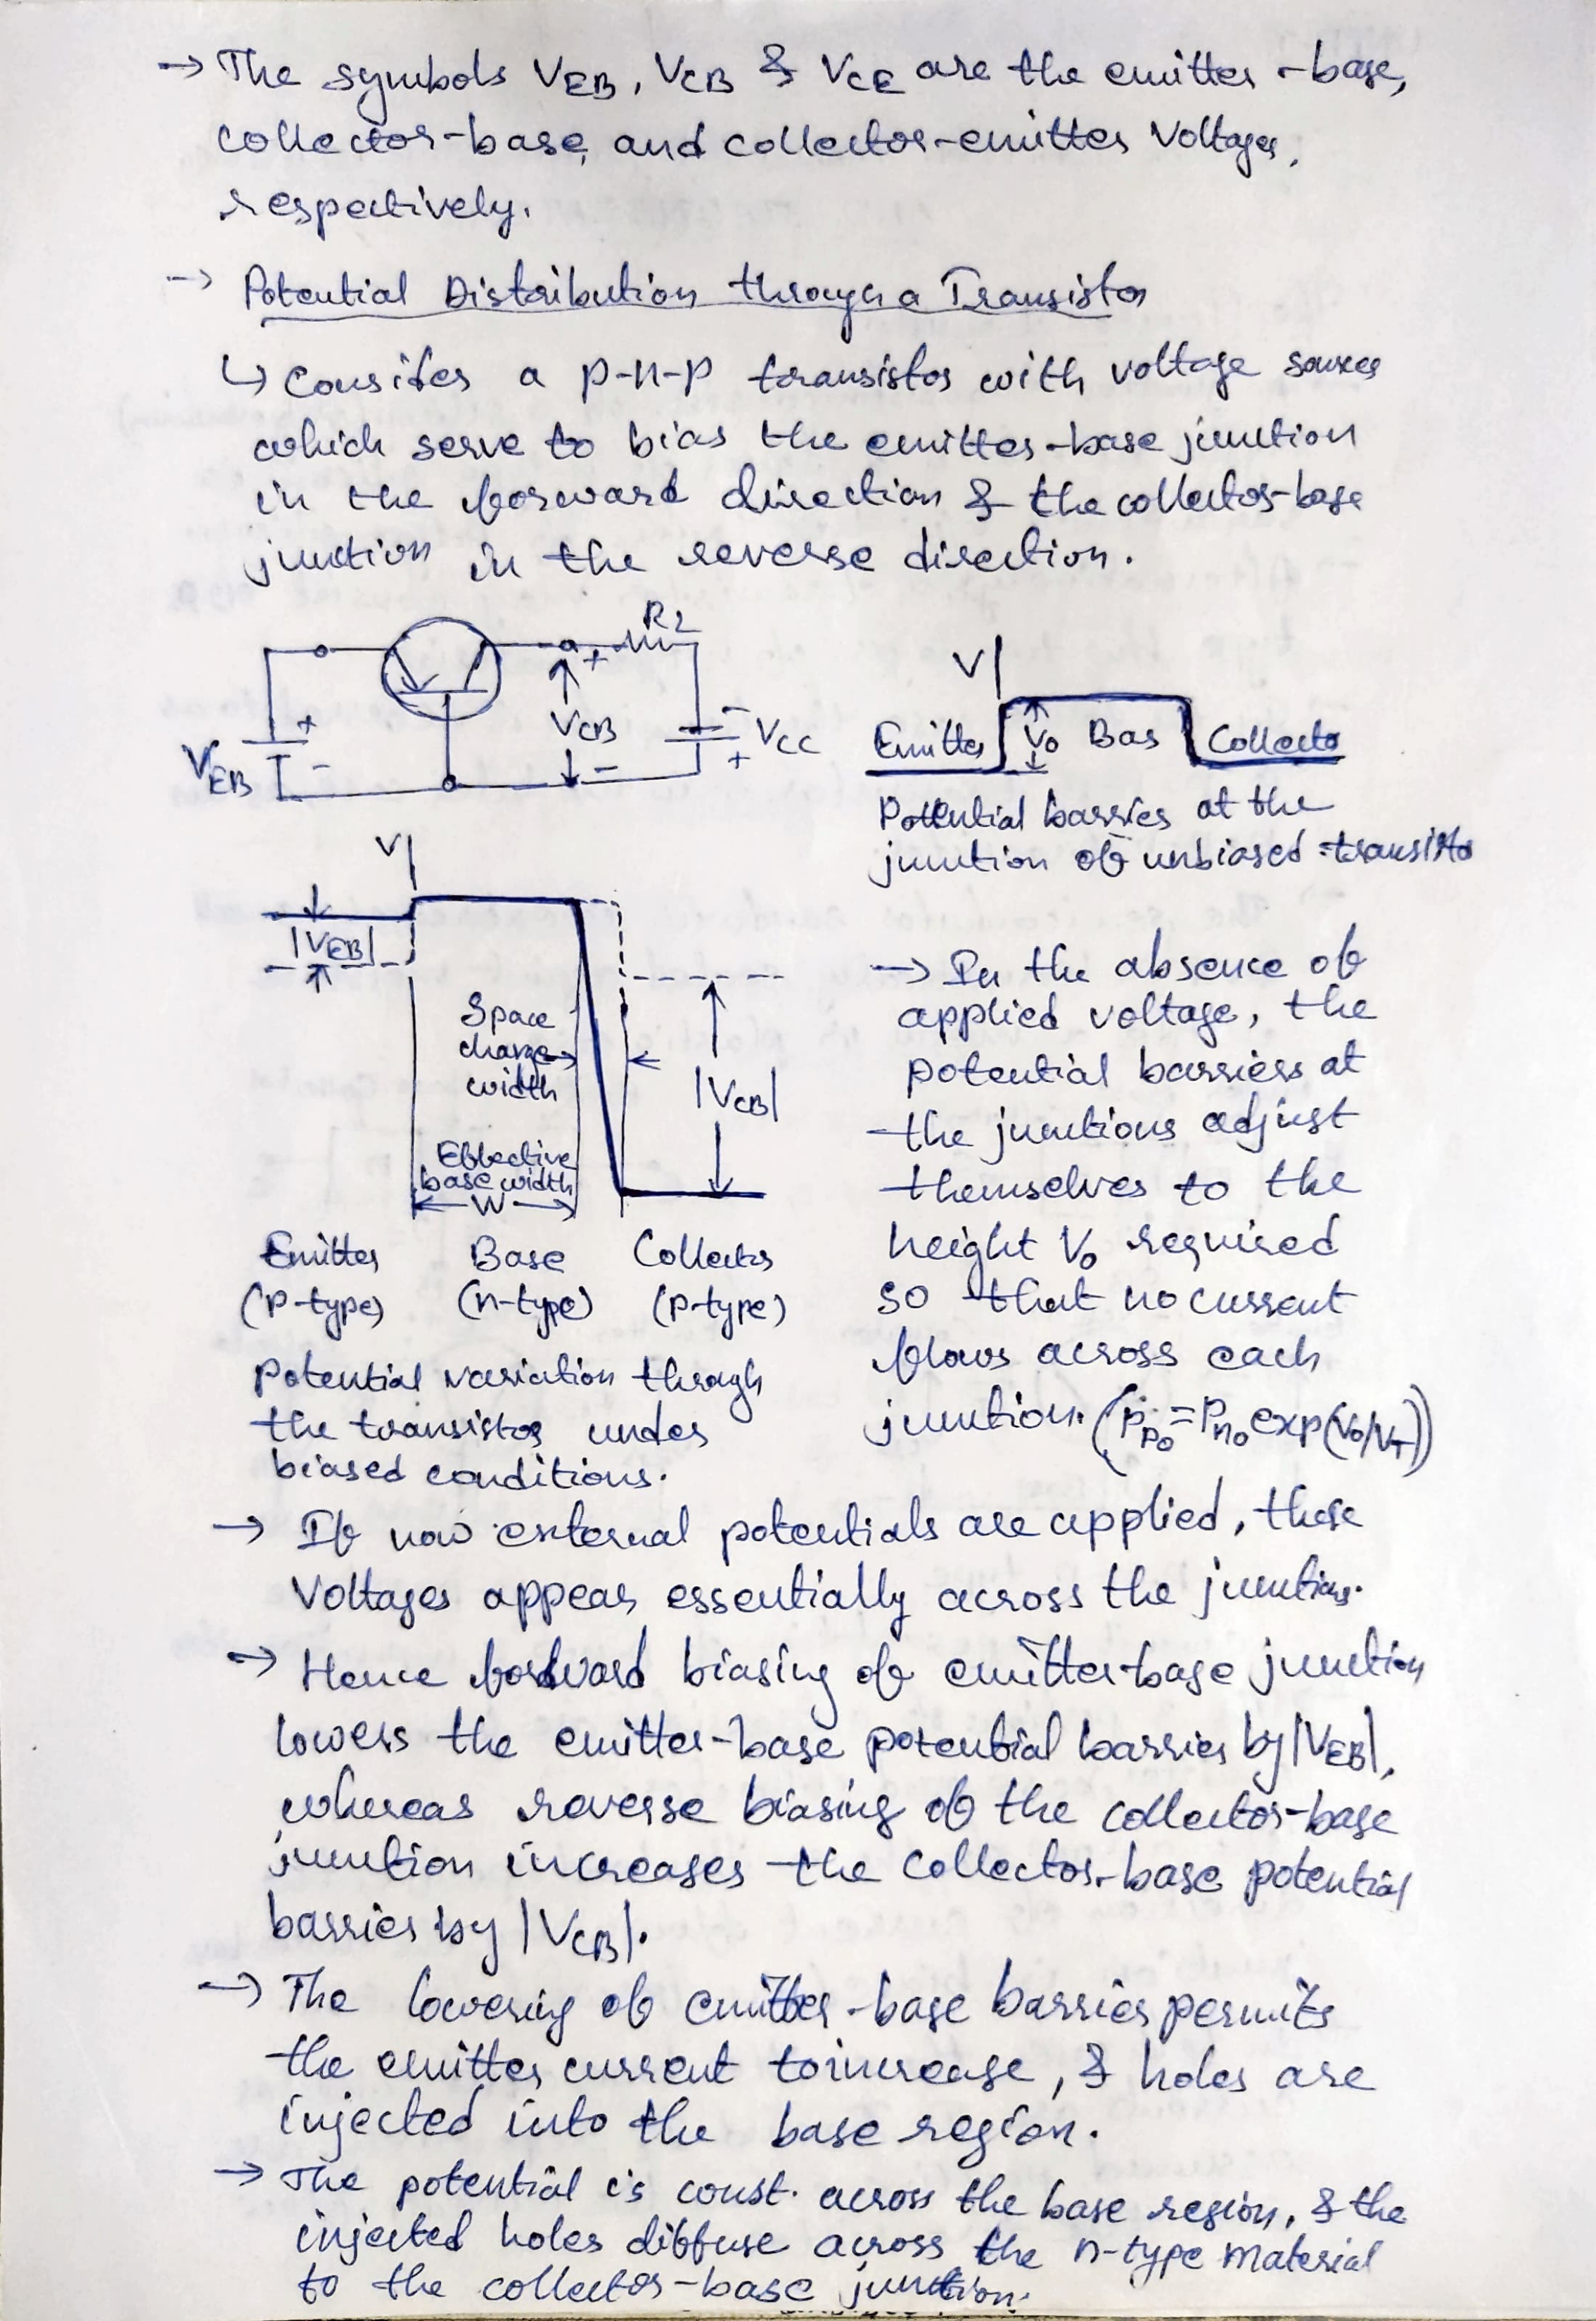 → The symbols VEB, VCB & VCE are the emitter-base,
collector-base, and collector-emitter Voltages,
respectively.
→ Potential Distribution through a Transistor
↳ Consider a p-n-p transistor with voltage sources
which serve to bias the emitter-base junction
in the forward direction & the collector-base
junction in the reverse direction.
RL
+
VCB
-
VEB
+
-
-
VCC
+
V
Emitter
V0
Bas
Collecto
Potential barrier at the
junction of unbiased transisto
V
|VEB|
Space
charge
width
|VCB|
Effective
base width
← W →
Emitter Base Collector
(p-type) (n-type) (p-type)
Potential variation through
the transistor under
biased conditions.
→ In the absence of
applied voltage, the
potential barriers at
the junctions adjust
themselves to the
height V0 required
so that no current
flows across each
junction. (Ppo = Pno exp(V0/VT))
→ If now external potentials are applied, these
Voltages appear essentially across the junctions.
→ Hence forward biasing of emitter-base junction
lowers the emitter-base potential barrier by |VEB|,
whereas reverse biasing of the collector-base
junction increases the collector-base potential
barrier by |VCB|.
→ The lowering of emitter-base barrier permits
the emitter current to increase, & holes are
injected into the base region.
→ The potential is const. across the base region, & the
injected holes diffuse across the n-type material
to the collector-base junction.